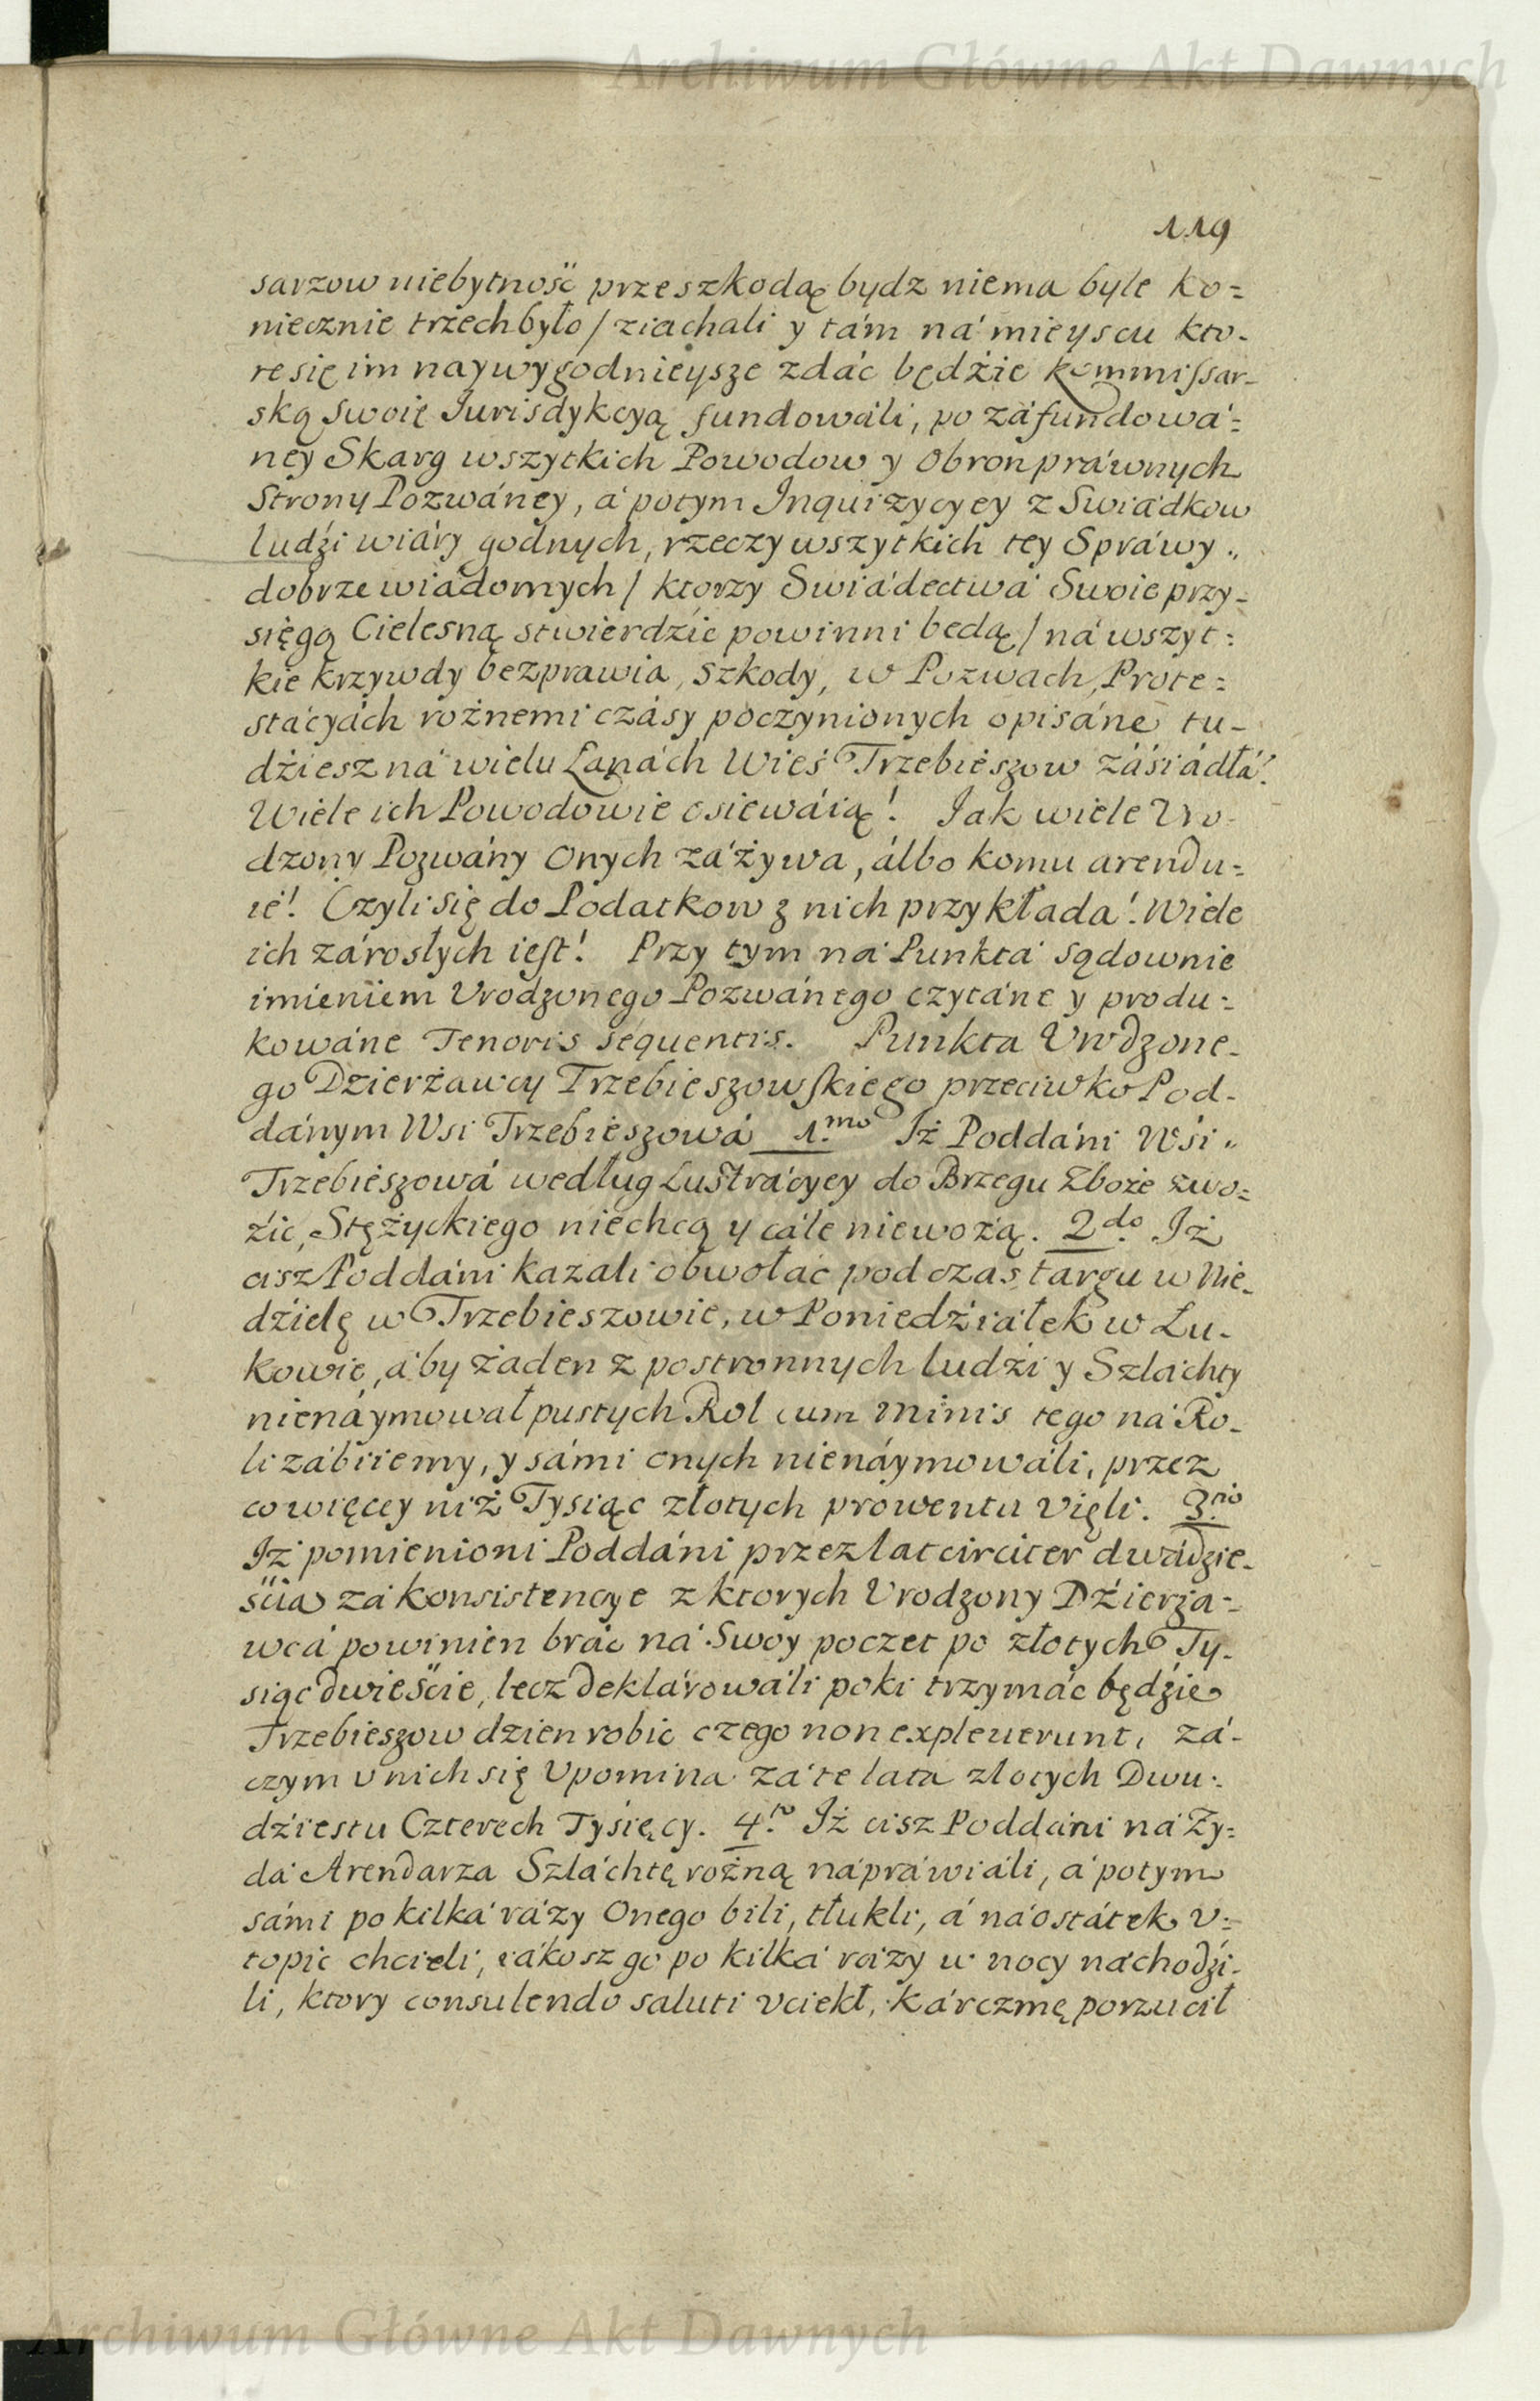 Archiwum Główne Akt Dawnych
119
sarzow niebytność przeszkodą bydz niema byle ko=
niecznie trzech było / ziachali y tám ná mieyscu kto-
re się im naywygodnieysze zdáć będźie kommissar-
ską swoię Jurisdykcyą fundowáli, po záfundowá=
ney Skarg wszytkich Powodow y Obron práwnych
Strony Pozwáney, á potym Inquizycyey z Swiádkow
ludźi wiáry godnych, rzeczy wszytkich tey Spráwy „
dobrze wiádomych / ktorzy Swiádectwá Swoie przy-
sięgą Cielesną stwierdzić powinni będą / ná wszyt=
kie krzywdy bezprawia, szkody, w Pozwach, Prote=
stácyách rożnemi czásy poczynionych opisáne tu-
dźiesz ná wielu Łanách Wieś Trzebieszow záśiádłá!
Wiele ich Powodowie osiewáią! Jak wiele Vro-
dzony Pozwány Onych záżywa, álbo komu arendu=
ie! Czyli się do Podatkow z nich przykłada! Wiele
ich zárosłych iest! Przy tym ná Punktá sądownie
imieniem Vrodzonego Pozwánego czytáne y produ=
kowáne Tenoris sequentis. Punkta Vrodzone-
go Dzierżawcy Trzebieszowskiego przeciwko Pod-
dánym Wsi Trzebieszowá 1.mo Iż Poddáni Wśi „
Trzebieszowá według Lustrácyey do Brzegu Zboże zwo=
źic, Stężyckiego niechcą y cále niewożą. 2do. Iż
cisz Poddáni kazali obwołać podczas targu w Nie-
dźielę w Trzebieszowie, w Poniedźiałek w Łu-
kowie, áby żaden z postronnych ludźi y Szláchty
nienáymował pustych Rol cum minis tego ná Ro-
li zábiiemy, y sámi onych nienáymowáli, przez
co więcey niż Tysiąc złotych prowentu vięli. 3.tio
Iż pomienioni Poddáni przez lat circiter dwádzie-
ścia zá konsistencye z ktorych Vrodzony Dźierża-
wcá powinien bráć ná Swoy poczet po złotych Ty-
siąc dwieście, lecz deklárowáli poki trzymáć będźie
Trzebieszow dzien robic czego non expleuerunt, zá-
czym v nich się Vpomina zá te lata złotych Dwu-
dźiestu Czterech Tyśięcy. 4.to Iż cisz Poddáni ná Ży=
dá Arendarza Szláchtę rożną nápráwiáli, á potym
sámi po kilká rázy Onego bili, tłukli, á ná ostátek v=
topic chcieli, iákosz go po kilká rázy w nocy náchodźi-
li, ktory consulendo saluti vciekł, kárczmę porzucił
Archiwum Główne Akt Dawnych